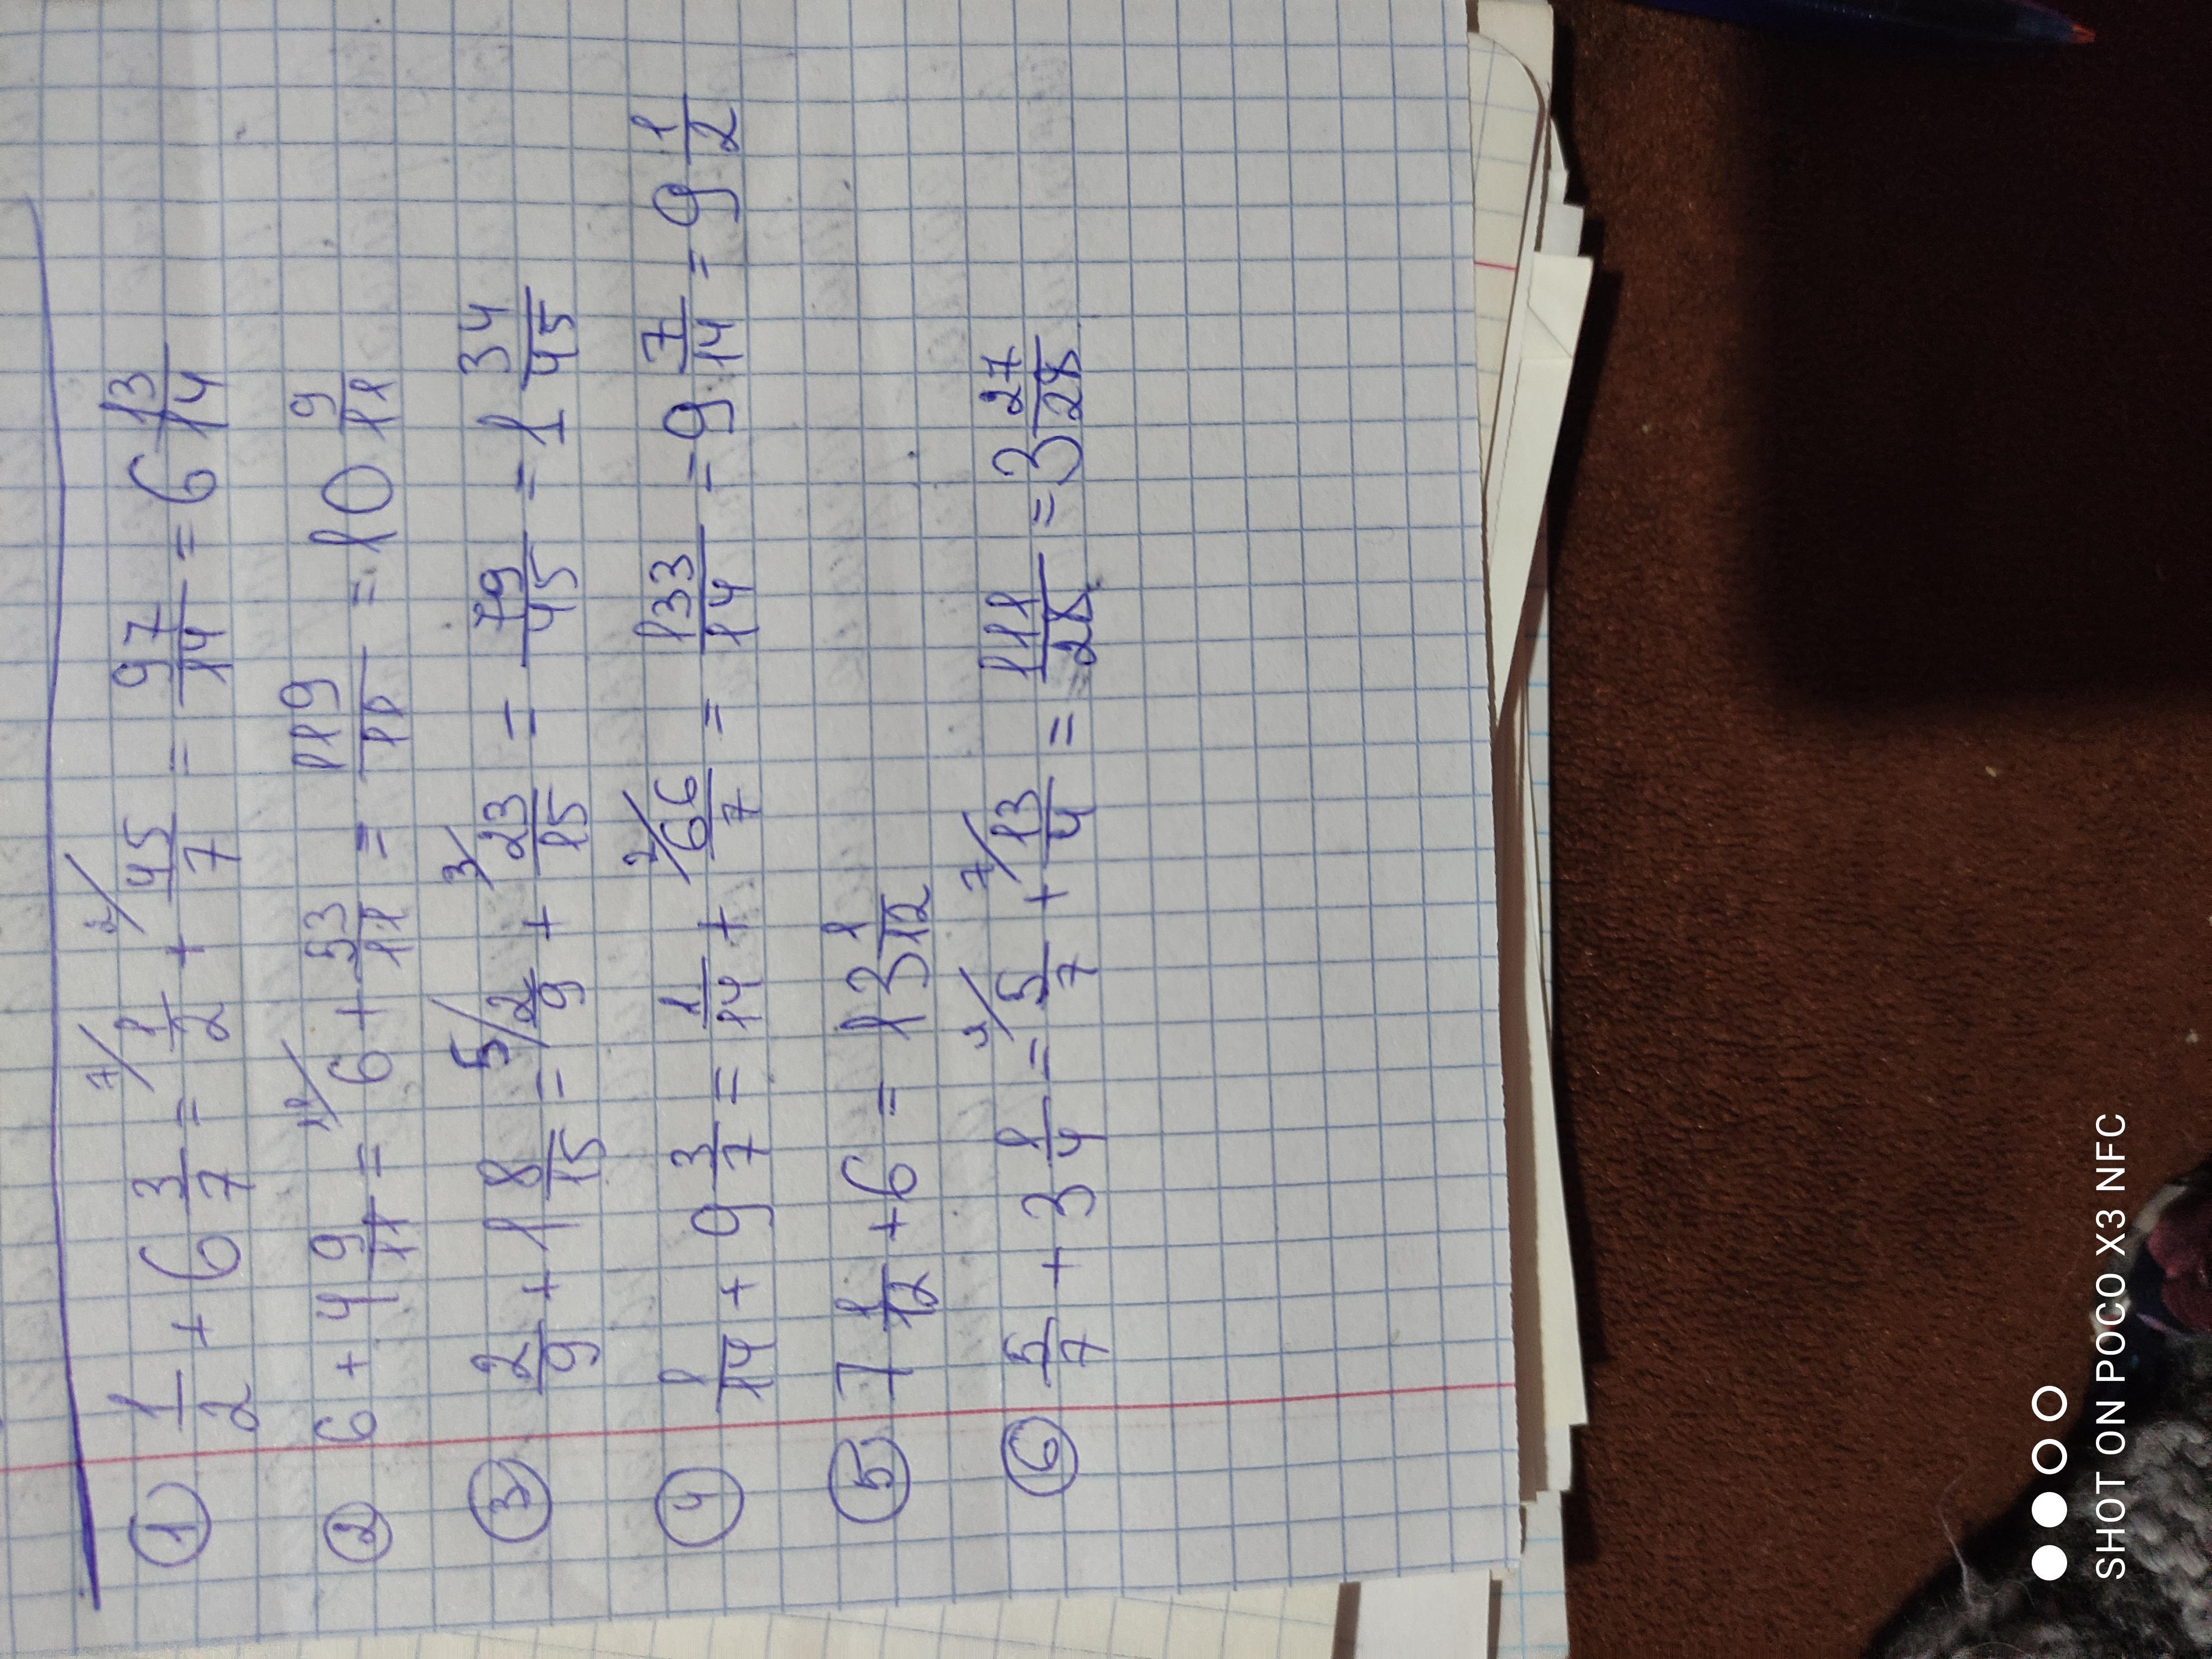 ① 1/2 + 6 3/7 = 7/ 1/2 + 2/ 45/7 = 97/14 = 6 13/14
② 6 + 4 9/11 = 11/ 6 + 53/11 = 119/11 = 10 9/11
③ 2/9 + 1 8/15 = 5/ 2/9 + 3/ 23/15 = 79/45 = 1 34/45
④ 1/14 + 9 3/7 = 1/14 + 2/ 66/7 = 133/14 = 9 7/14 = 9 1/2
⑤ 7 1/12 + 6 = 13 1/12
⑥ 5/7 + 3 1/4 = 4/ 5/7 + 7/ 13/4 = 111/28 = 3 27/28
SHOT ON POCO X3 NFC